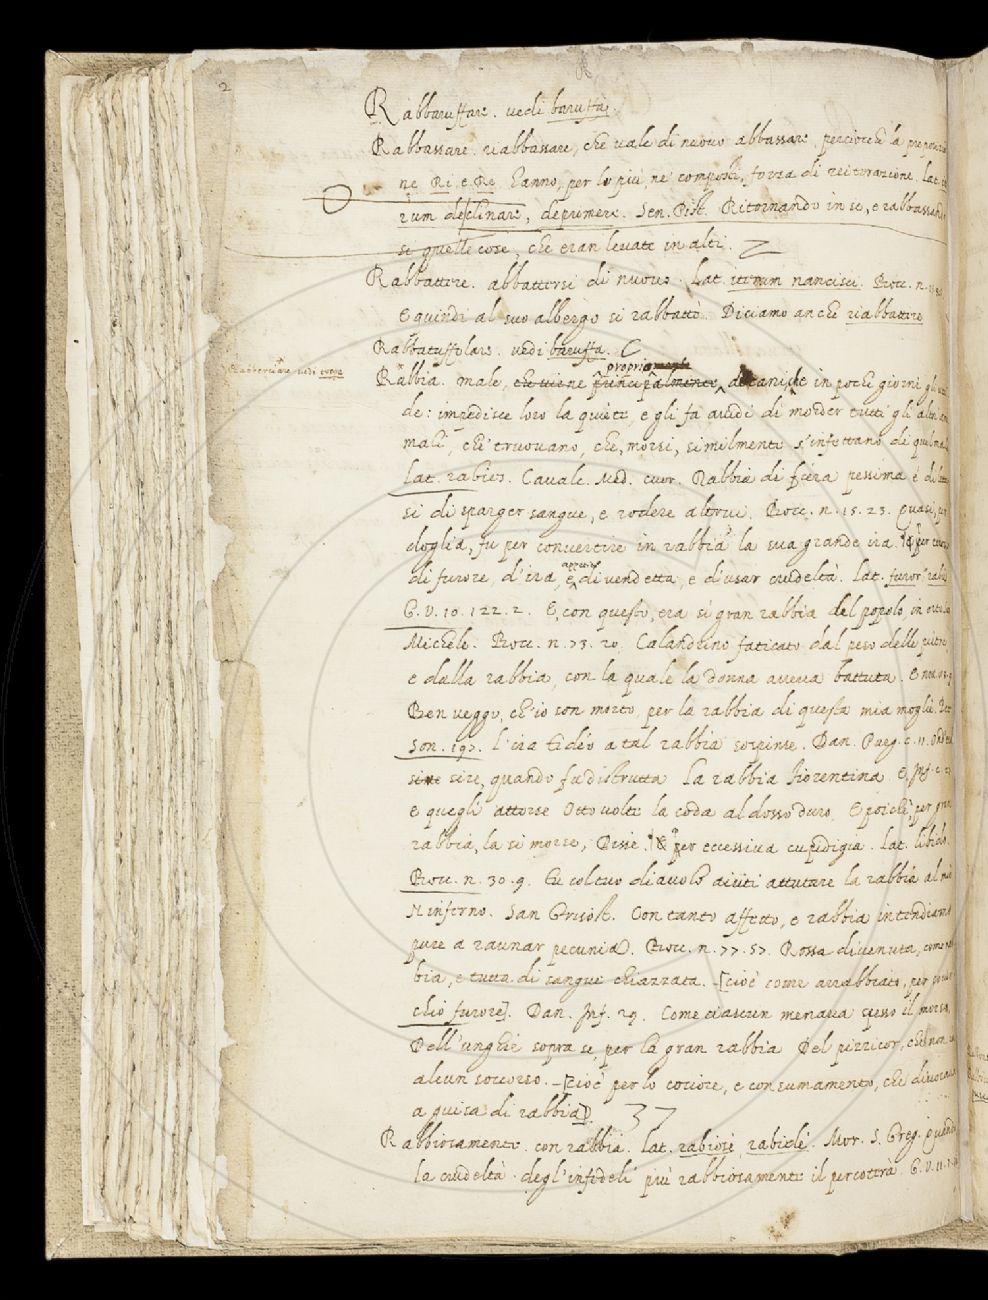 2
Rabbaruffare. vedi baruffa.
Rabbassare. riabbassare, che vale di nuovo abbassare, perciocchè la
ne Ri, e Re hanno, per lo più, ne' composti, forza di reiterazione. Lat.
rum declinare, deprimere. Sen. Pist. Ritornando in se, e rabbassando
si quelle cose, che eran levate in alti.
Rabbattere. abbattersi di nuovo. Lat. iterum nancisci. Bocc. n.
E quindi al suo albergo si rabbattò. Diciamo anche riabbattere
Rabbatuffolare. vedi baruffa.
Rabberciare vedi
propriamente
Rabbia. male, che viene principalmente, a' cani, che in pochi giorni gli
de: impedisce loro la quiete, e gli fa avidi di morder tutti gli altri
mali, che truovano, che, morsi, similmente s'infettano di quel
Lat. rabies. Cavalc. Med. cuor. Rabbia di fiera pessima è
si di sparger sangue, e rodere altrui. Bocc. n. 15. 23. quasi, per
doglia, fu per convertire in rabbia la sua grande ira. & per
di furore, d'ira, e di vendetta, e d'usar crudeltà. Lat. furor rabies
G. V. 10. 122. 2. E, con questo, era sì gran rabbia del popolo, in
Michele. Bocc. n. 73. 20. Calandrino faticato dal peso delle pietre,
e dalla rabbia, con la quale la donna aveva battuta. E
Ben veggo, ch'io son morto, per la rabbia di questa mia moglie.
Son. 197. l'ira Tideo a tal rabbia sospinse. Dan. Purg. c. 11.
sire sire, quando fu distrutta La rabbia fiorentina. E Inf. c.
e quegli attorse Otto volte la coda al dosso duro. E poichè per gran
rabbia, la si morse, Disse. & per eccessiva cupidigia. Lat. libido.
Bocc. n. 30. 9. Tu col tuo diavolo aiuti attutare la rabbia al
Ninferno. San Grisost. Con tanto affetto, e rabbia intendiamo
pure a raunar pecunia. Bocc. n. 77. 57. Rossa divenuta, come
bia, e tutta di sangue chiazzata. [cioè come arrabbiato, per
chio furore]. Dan. Inf. 29. Come ciascun menava spesso il morso,
Dell'unghie sopra se, per la gran rabbia Del pizzicor, che non
alcun soccorso. [cioè per lo cociore, e consumamento, che divora
a guisa di rabbia]
Rabbiosamente. con rabbia. Lat. rabiose, rabide. Mor. S. Greg. quando
la crudeltà degl'infedeli più rabbiosamente il percoterà. G. V. 11.